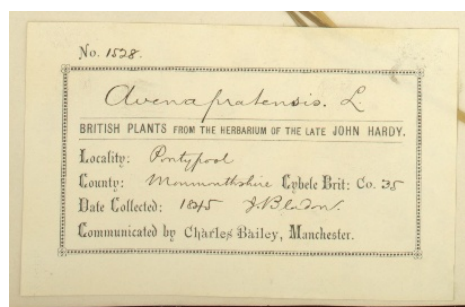 No. 1528.
Avena pratensis. L.
BRITISH PLANTS FROM THE HERBARIUM OF THE LATE JOHN HARDY.
Locality: Pontypool
County: Monmouthshire Cybele Brit: Co. 35
Date Collected: 1845 J. Bladon.
Communicated by Charles Bailey, Manchester.